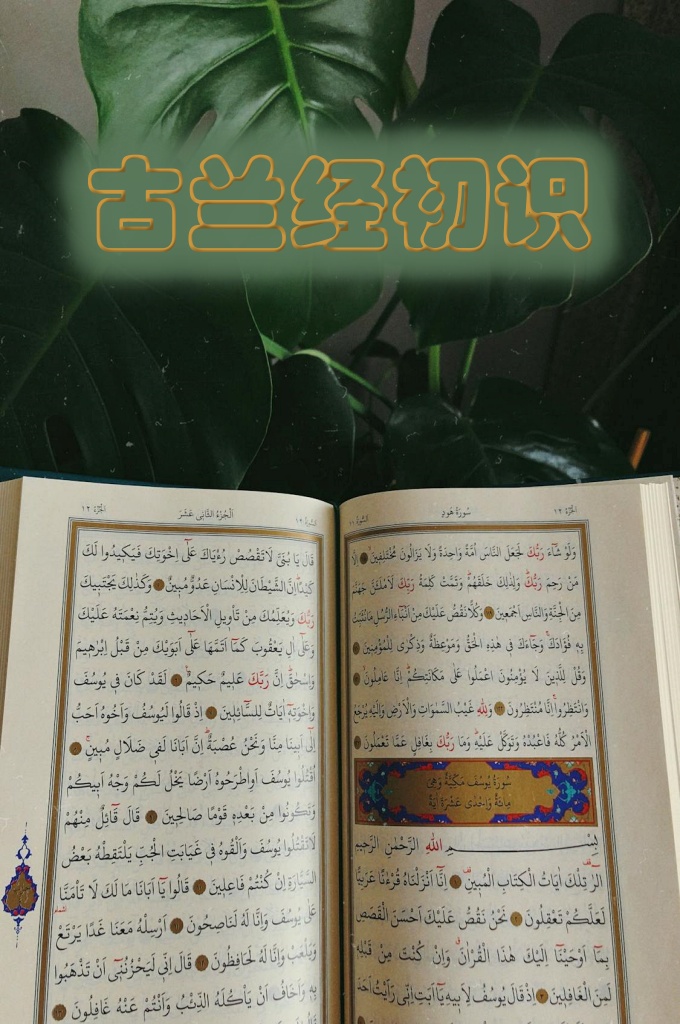 古兰经初识
الجزء ١٢ سُورَةُ هُودٍ السورة ١١
وَلَوْ شَٓاءَ رَبُّكَ لَجَعَلَ النَّاسَ اُمَّةً وَاحِدَةً وَلَا يَزَالُونَ مُخْتَلِفِينَ اِلَّا
مَنْ رَحِمَ رَبُّكَ وَلِذٰلِكَ خَلَقَهُمْ وَتَمَّتْ كَلِمَةُ رَبِّكَ لَاَمْلَـَٔنَّ جَهَنَّمَ
مِنَ الْجِنَّةِ وَالنَّاسِ اَجْمَعِينَ وَكُلًّا نَقُصُّ عَلَيْكَ مِنْ اَنْبَٓاءِ الرُّسُلِ مَا نُثَبِّتُ
بِهِ فُؤَادَكَ وَجَٓاءَكَ فِى هٰذِهِ الْحَقُّ وَمَوْعِظَةٌ وَذِكْرٰى لِلْمُؤْمِنِينَ
وَقُلْ لِلَّذِينَ لَا يُؤْمِنُونَ اعْمَلُوا عَلٰى مَكَانَتِكُمْ اِنَّا عَامِلُونَ
وَانْتَظِرُوا اِنَّا مُنْتَظِرُونَ وَلِلّٰهِ غَيْبُ السَّمٰوَاتِ وَالْاَرْضِ وَاِلَيْهِ يُرْجَعُ
الْاَمْرُ كُلُّهُ فَاعْبُدْهُ وَتَوَكَّلْ عَلَيْهِ وَمَا رَبُّكَ بِغَافِلٍ عَمَّا تَعْمَلُونَ
سُورَةُ يُوسُفَ مَكِّيَّةٌ وَهِىَ
مِائَةٌ وَاِحْدٰى عَشْرَةَ اٰيَةً
بِسْمِ اللّٰهِ الرَّحْمٰنِ الرَّحِيمِ
الٓرٰ تِلْكَ اٰيَاتُ الْكِتَابِ الْمُبِينِ اِنَّٓا اَنْزَلْنَاهُ قُرْءٰنًا عَرَبِيًّا
لَعَلَّكُمْ تَعْقِلُونَ نَحْنُ نَقُصُّ عَلَيْكَ اَحْسَنَ الْقَصَصِ
بِمَٓا اَوْحَيْنَٓا اِلَيْكَ هٰذَا الْقُرْاٰنَ وَاِنْ كُنْتَ مِنْ قَبْلِهِ
لَمِنَ الْغَافِلِينَ اِذْ قَالَ يُوسُفُ لِاَبِيهِ يَٓا اَبَتِ اِنِّى رَاَيْتُ اَحَدَ
الجزء ١٢ اَلْجُزْءُ الثَّانِى عَشَرَ السورة ١٢
قَالَ يَا بُنَىَّ لَا تَقْصُصْ رُءْيَاكَ عَلٰٓى اِخْوَتِكَ فَيَكِيدُوا لَكَ
كَيْدًا اِنَّ الشَّيْطَانَ لِلْاِنْسَانِ عَدُوٌّ مُبِينٌ وَكَذٰلِكَ يَجْتَبِيكَ
رَبُّكَ وَيُعَلِّمُكَ مِنْ تَأْوِيلِ الْاَحَادِيثِ وَيُتِمُّ نِعْمَتَهُ عَلَيْكَ
وَعَلٰٓى اٰلِ يَعْقُوبَ كَمَٓا اَتَمَّهَا عَلٰٓى اَبَوَيْكَ مِنْ قَبْلُ اِبْرٰهِيمَ
وَاِسْحٰقَ اِنَّ رَبَّكَ عَلِيمٌ حَكِيمٌ لَقَدْ كَانَ فِى يُوسُفَ
وَاِخْوَتِهِٓ اٰيَاتٌ لِلسَّٓائِلِينَ اِذْ قَالُوا لَيُوسُفُ وَاَخُوهُ اَحَبُّ
اِلٰٓى اَبِينَا مِنَّا وَنَحْنُ عُصْبَةٌ اِنَّ اَبَانَا لَفِى ضَلَالٍ مُبِينٍ
اُقْتُلُوا يُوسُفَ اَوِ اطْرَحُوهُ اَرْضًا يَخْلُ لَكُمْ وَجْهُ اَبِيكُمْ
وَتَكُونُوا مِنْ بَعْدِهِ قَوْمًا صَالِحِينَ قَالَ قَٓائِلٌ مِنْهُمْ
لَا تَقْتُلُوا يُوسُفَ وَاَلْقُوهُ فِى غَيَابَتِ الْجُبِّ يَلْتَقِطْهُ بَعْضُ
السَّيَّارَةِ اِنْ كُنْتُمْ فَاعِلِينَ قَالُوا يَٓا اَبَانَا مَا لَكَ لَا تَأْمَنَّا
عَلٰى يُوسُفَ وَاِنَّا لَهُ لَنَاصِحُونَ اَرْسِلْهُ مَعَنَا غَدًا يَرْتَعْ
وَيَلْعَبْ وَاِنَّا لَهُ لَحَافِظُونَ قَالَ اِنِّى لَيَحْزُنُنِٓى اَنْ تَذْهَبُوا
بِهِ وَاَخَافُ اَنْ يَأْكُلَهُ الذِّئْبُ وَاَنْتُمْ عَنْهُ غَافِلُونَ